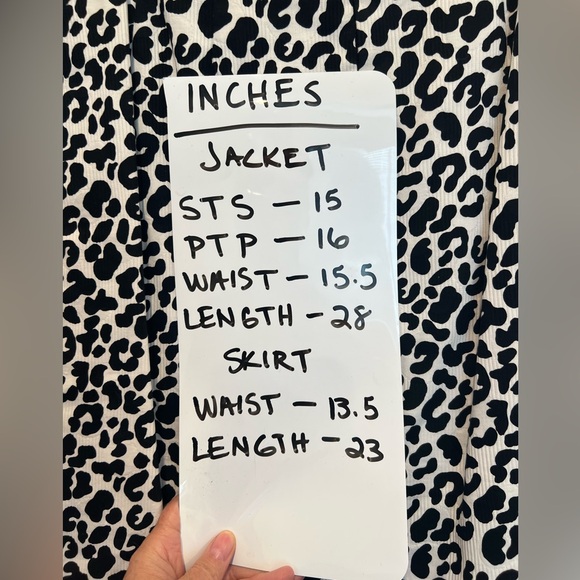 INCHES
JACKET
STS - 15
PTP - 16
WAIST - 15.5
LENGTH - 28
SKIRT
WAIST - 13.5
LENGTH - 23